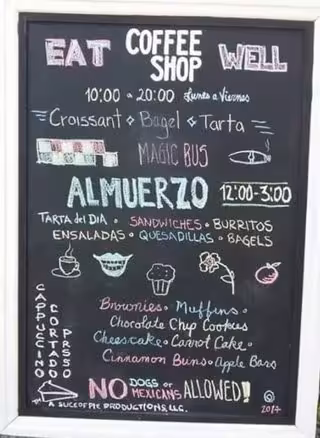 EAT COFFEE SHOP WELL
10:00 a 20:00 Lunes a Viernes
Croissant Bagel Tarta
MAGIC BUS
ALMUERZO 12:00-3:00
TARTA del DIA • SANDWICHES • BURRITOS
ENSALADAS • QUESADILLAS • BAGELS
Brownies • Muffins •
Chocolate Chip Cookies
Cheesecake • Carrot Cake •
Cinnamon Buns • Apple Bars
CAPPUCCINO
CORTADO
NO DOGS or MEXICANS ALLOWED!!
A SLICE OF PIE PRODUCTIONS, LLC.
2014